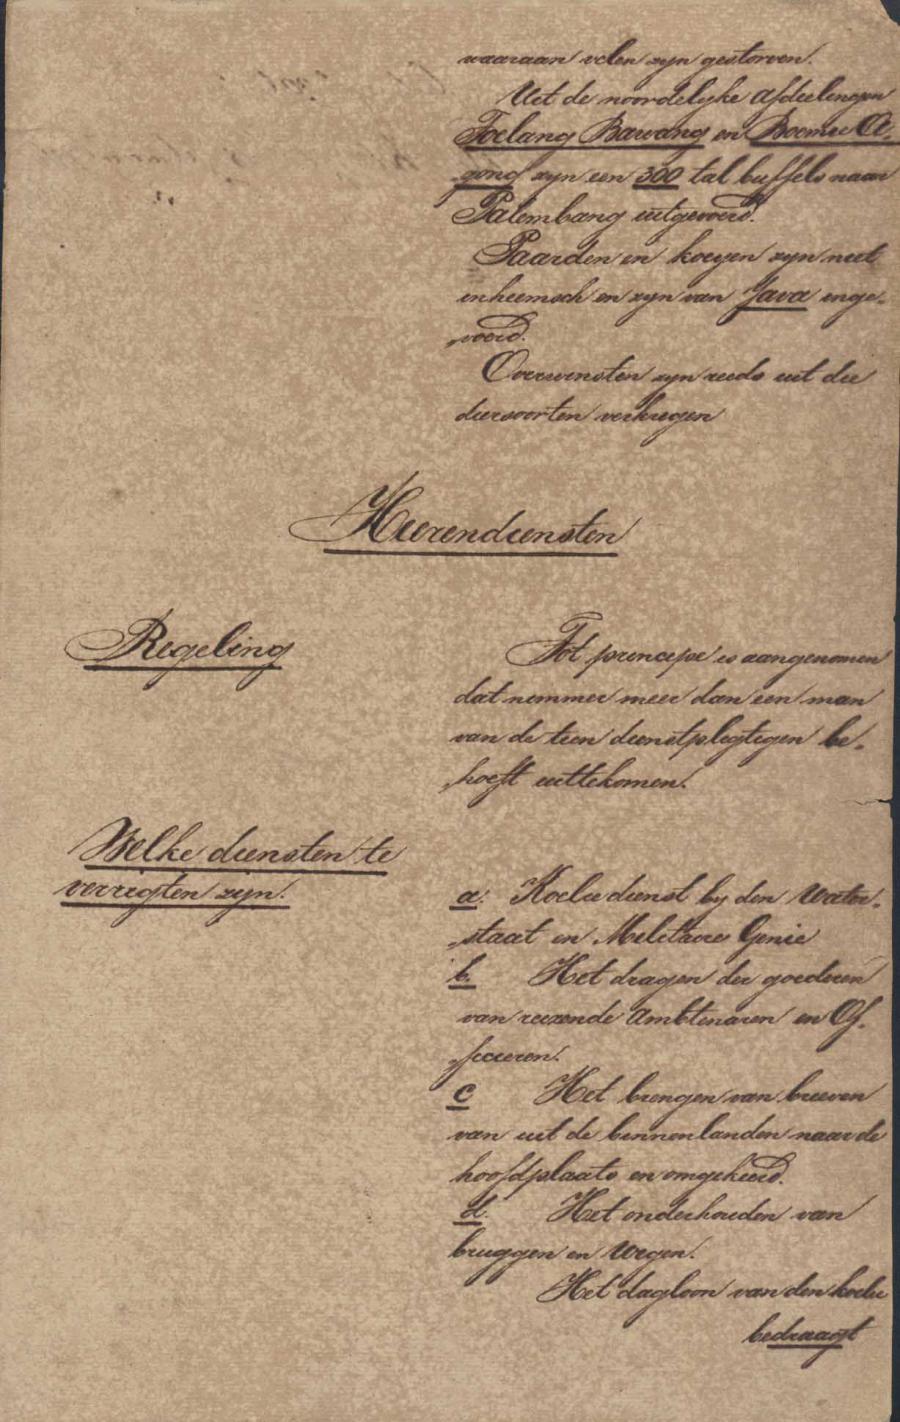 waaraan velen zyn gestorven.
Uit de noordelyke afdeelingen
Toelang Bawang en Boemie A-
gong zyn een 300 tal buffels naar
Palembang uitgevoerd.
Paarden en koeyen zyn niet
inheemsch en zyn van Java inge-
voerd.
Overwinsten zyn reeds uit die
diersoorten verkregen
Heerendiensten
Regeling
Tot principe is aangenomen
dat nimmer meer dan een man
van de tien dienstpligtigen be-
hoeft uittekomen.
Welke diensten te
verrigten zyn.
a. Koelie dienst by den Water-
staat en Militaire Genie
b. Het dragen der goederen
van reizende Ambtenaren en Of-
ficieren.
c Het brengen van brieven
van uit de binnenlanden naar de
hoofdplaats en omgekeerd.
d. Het onderhouden van
bruggen en wegen.
Het dagloon van den koelie
bedraagt